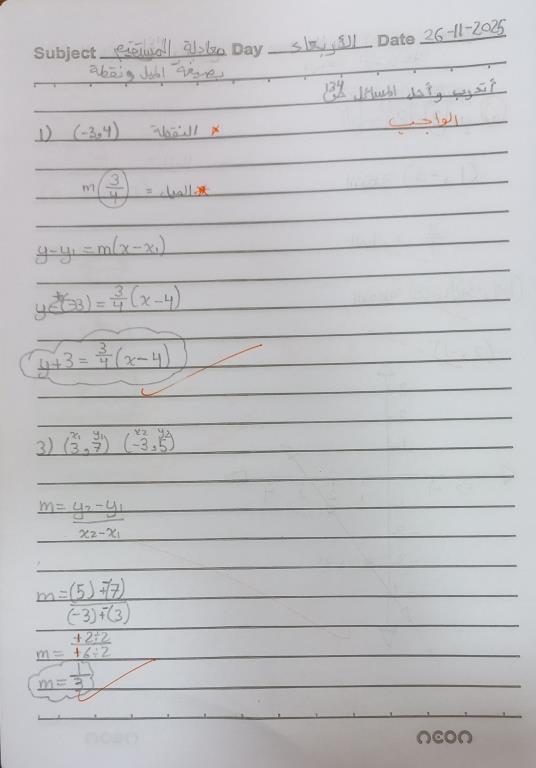 Subject معادلة المستقيم Day الأربعاء Date 26-11-2025
بصيغة الميل ونقطة
أتدرب وأحل المسائل ص134
الواجب
1) (-3,4) النقطة *
m 3/4 = الميل *
y-y₁ = m(x-x₁)
y-(-3) = 3/4 (x-4)
y+3 = 3/4 (x-4)
x₁ y₁ x₂ y₂
3) (3,7) (-3,5)
m = y₂-y₁ / x₂-x₁
m = (5)+-(7) / (-3)+-(3)
m = +2÷2 / +6÷2
m = 1/3
neon